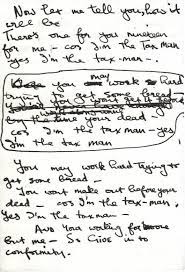 Now let me tell you, how it
will be
There's one for you nineteen
for me – cos I'm the tax man
yes I'm the tax-man –.
you may work hard
get some bread –
your dead –
cos I'm the tax-man – yes
I'm the tax man
You may work hard trying to
get some bread –
You wont make out before your
dead – cos I'm the tax-man.
Yes I'm the taxman –
And you working for
but me – So Give in to
conformity.